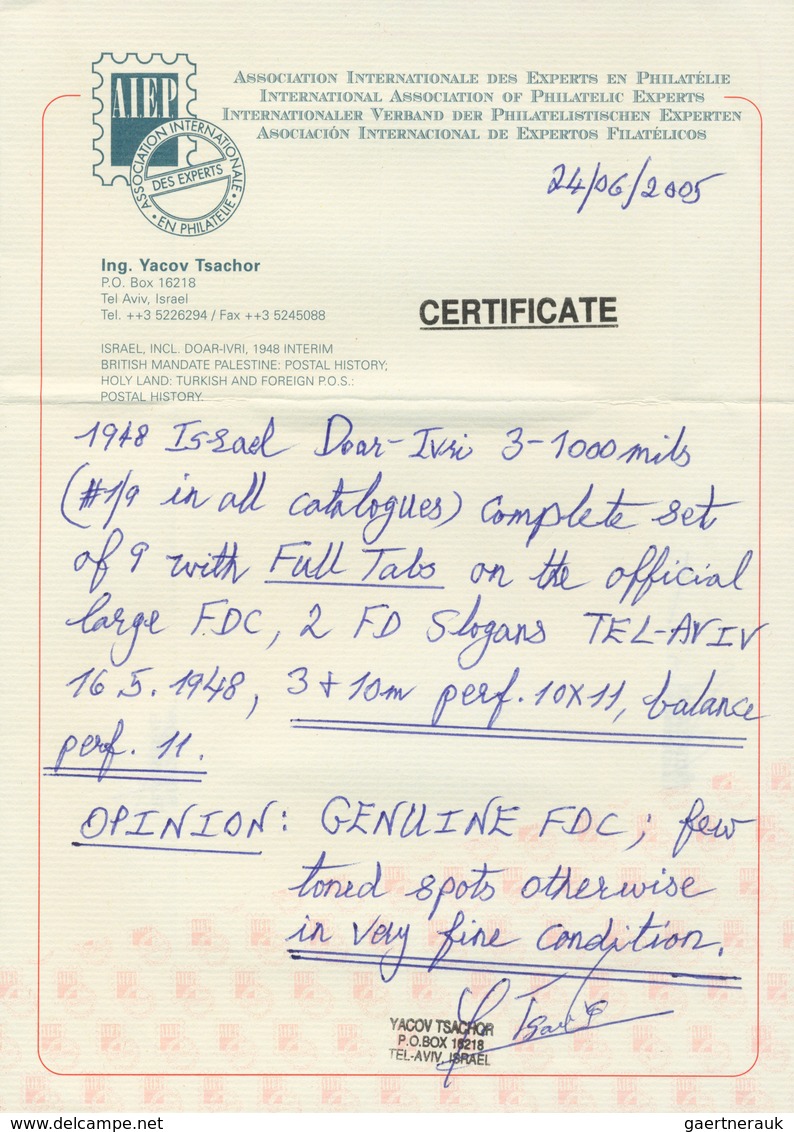 A.I.E.P.
ASSOCIATION INTERNATIONALE
DES EXPERTS
• EN PHILATELIE •
ASSOCIATION INTERNATIONALE DES EXPERTS EN PHILATÉLIE
INTERNATIONAL ASSOCIATION OF PHILATELIC EXPERTS
INTERNATIONALER VERBAND DER PHILATELISTISCHEN EXPERTEN
ASOCIACIÓN INTERNACIONAL DE EXPERTOS FILATÉLICOS
24/06/2005
Ing. Yacov Tsachor
P.O. Box 16218
Tel Aviv, Israel
Tel. ++3 5226294 / Fax ++3 5245088
CERTIFICATE
ISRAEL, INCL. DOAR-IVRI, 1948 INTERIM
BRITISH MANDATE PALESTINE: POSTAL HISTORY;
HOLY LAND: TURKISH AND FOREIGN P.O.S.:
POSTAL HISTORY.
1948 Israel Doar-Ivri 3-1000 mils
(#1/9 in all catalogues) complete set
of 9 with Full Tabs on the official
large FDC, 2 FD Slogans TEL-AVIV
16.5.1948, 3+10m perf. 10x11, balance
perf. 11.
OPINION: GENUINE FDC; few
toned spots otherwise
in very fine condition.
Y. Tsachor
YACOV TSACHOR
P.O.BOX 16218
TEL-AVIV, ISRAEL
delcampe.net
gaertnerauk